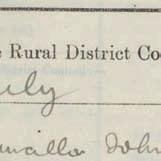 e Rural District Co
uly
uncillor John